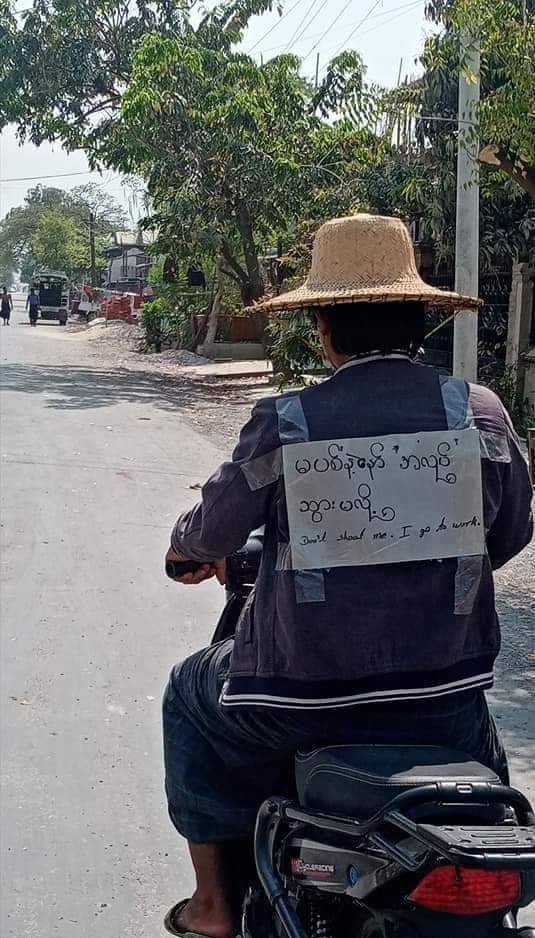 မပစ်နဲ့နော် "အလုပ်"
သွားမလို့
Don't shoot me. I go to work.
CYCLERACING